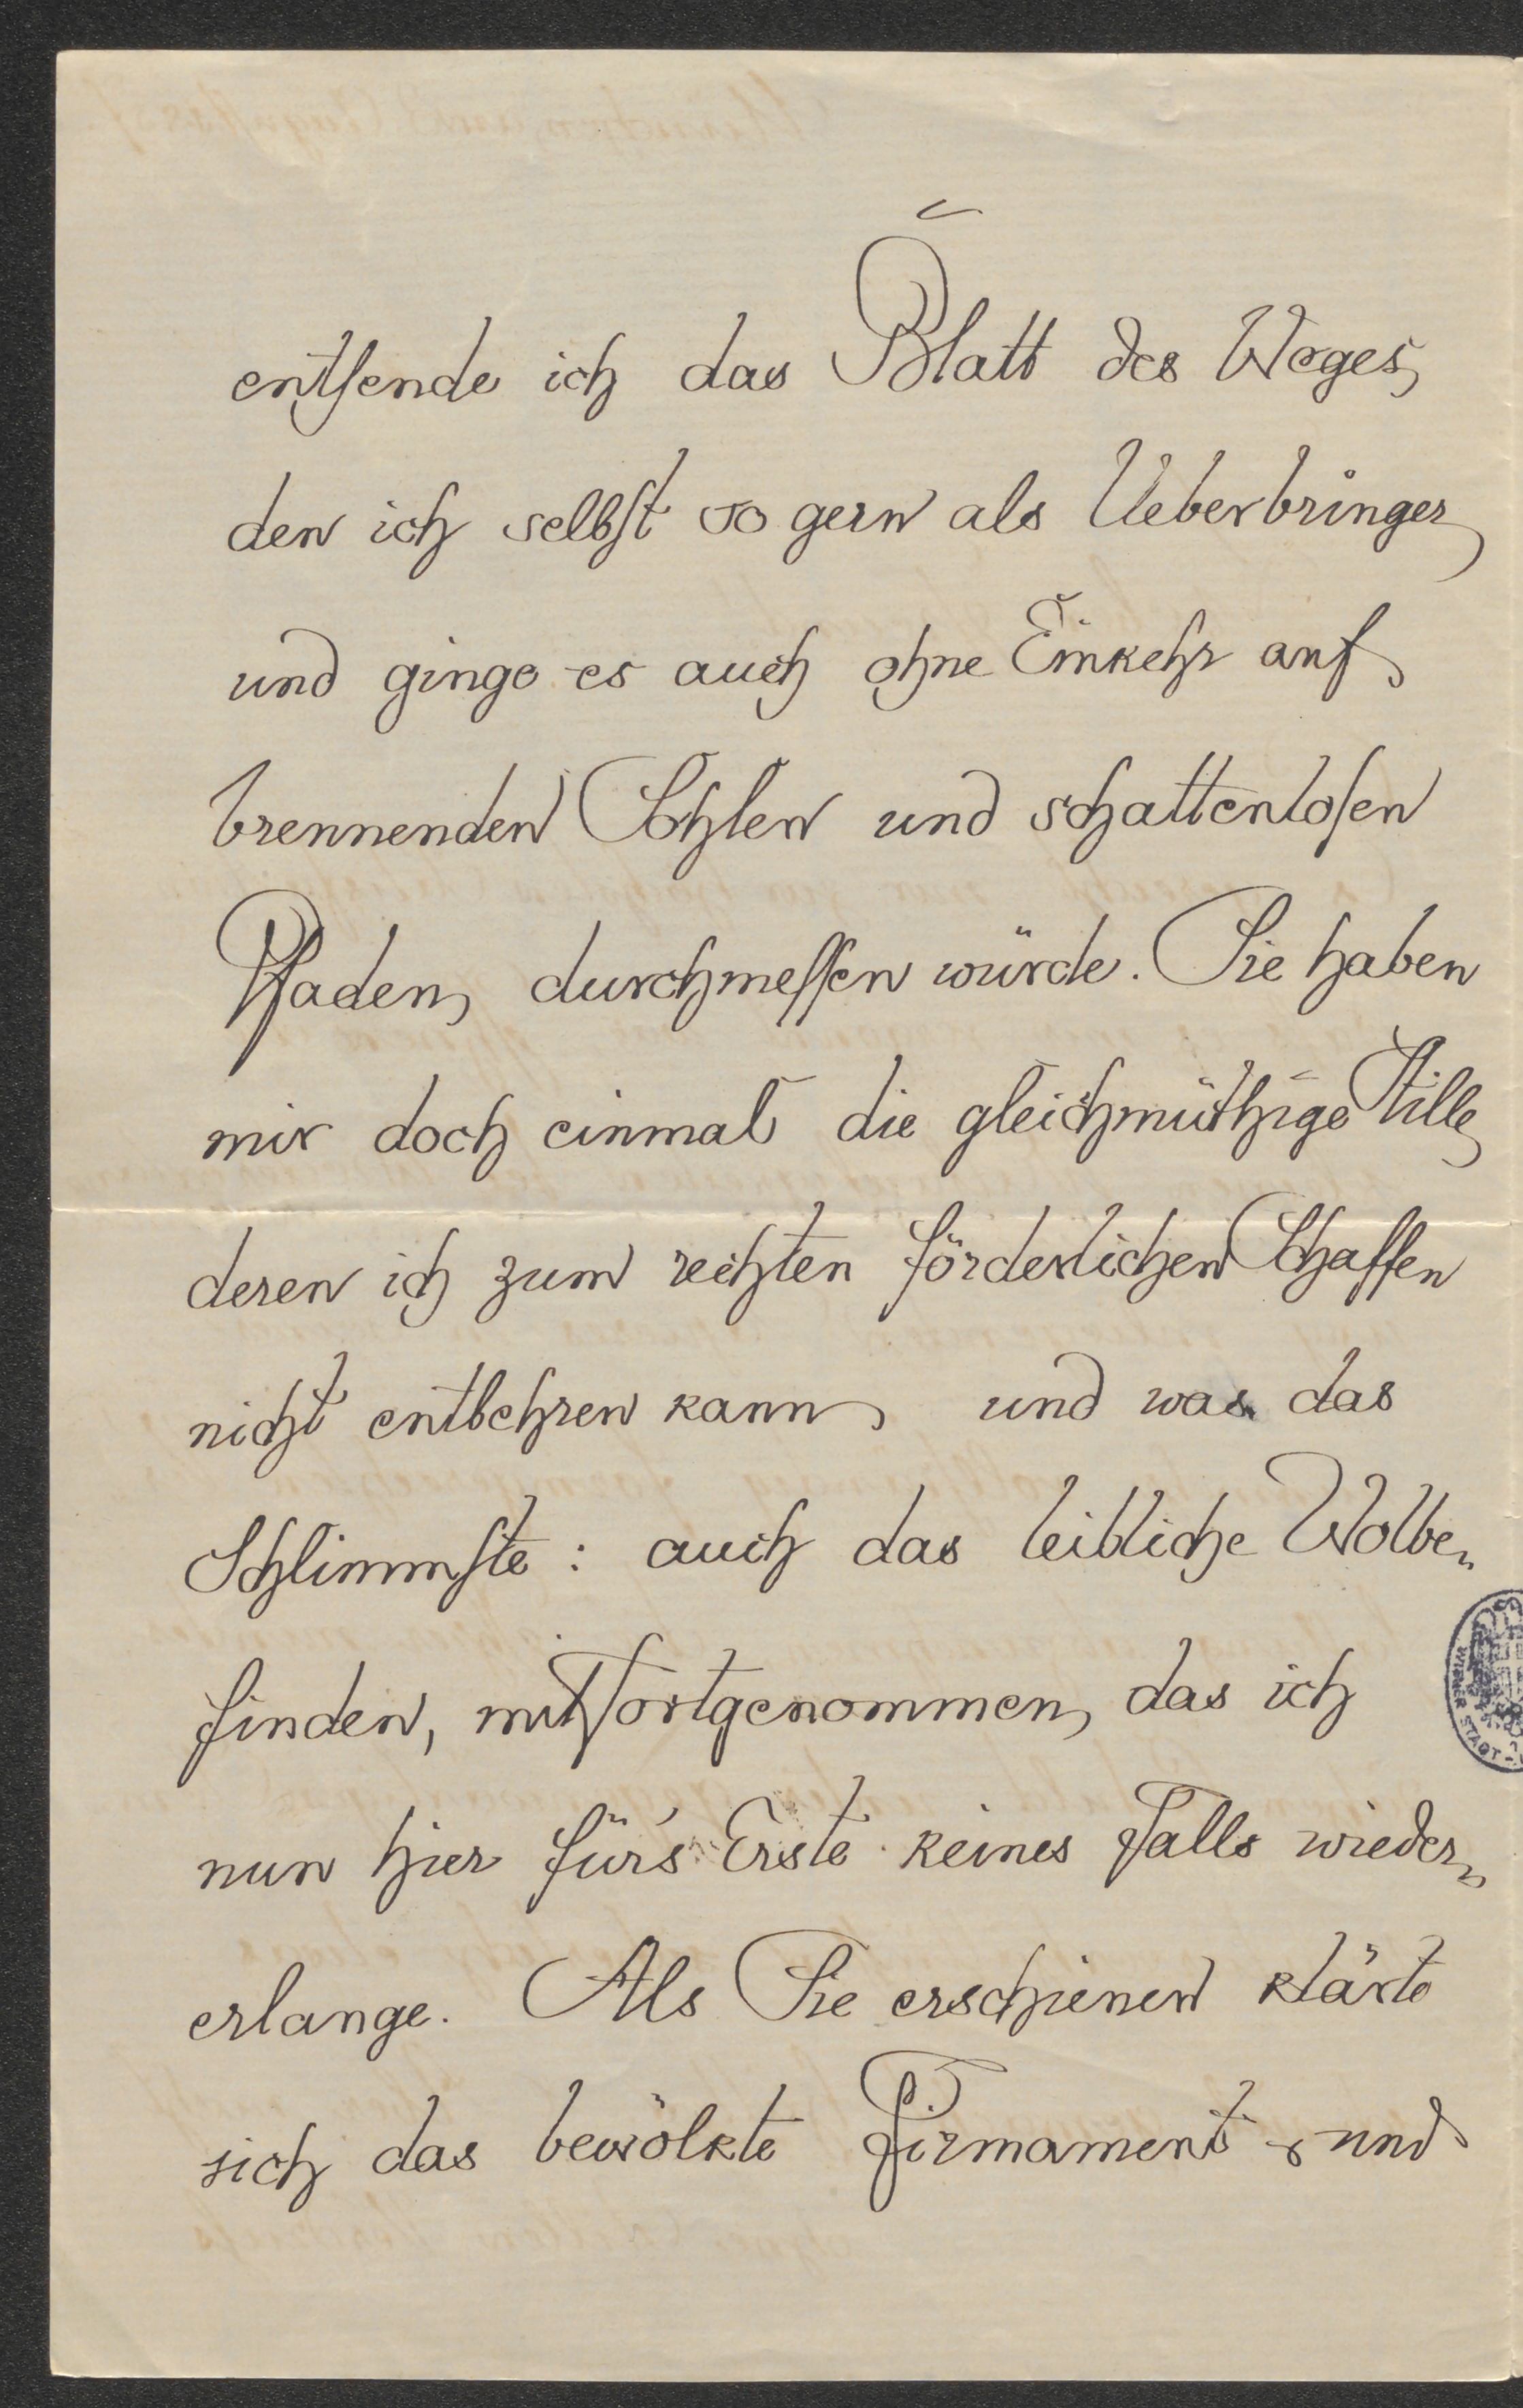 entsende ich das Blatt des Weges,
den ich selbst so gern als Ueberbringer,
und ginge es auch ohne Einkehr auf
brennenden Sohlen und schattenlosen
Pfaden, durchmessen würde. Sie haben
mir doch einmal die gleichmüthige Stille,
deren ich zum rechten förderlichen Schaffen
nicht entbehren kann, und was das
Schlimmste: auch das leibliche Wolbe-
finden, mit fortgenommen, das ich
nun hier für's Erste keines Falls wieder-
erlange. Als Sie erschienen klärte
sich das bewölkte Firmament, und
WIENER STADT-